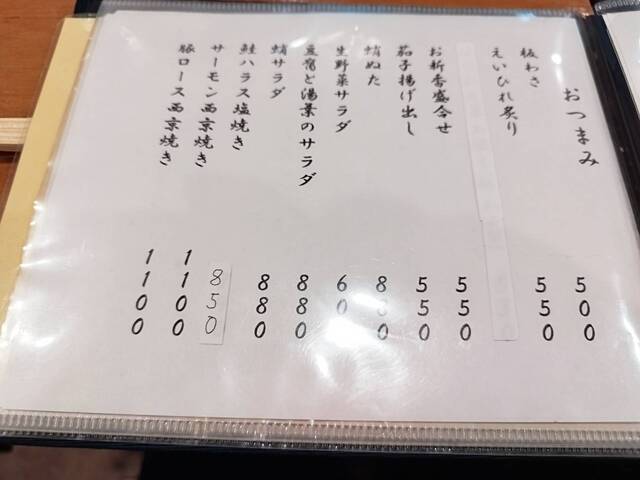 おつまみ
板わさ 500
えいひれ炙り 550
お新香盛合せ 550
茄子揚げ出し 550
蛸ぬた
生野菜サラダ 600
豆腐と湯葉のサラダ 880
蛸サラダ 880
鮭ハラス塩焼き 850
サーモン西京焼き 1100
豚ロース西京焼き 1100